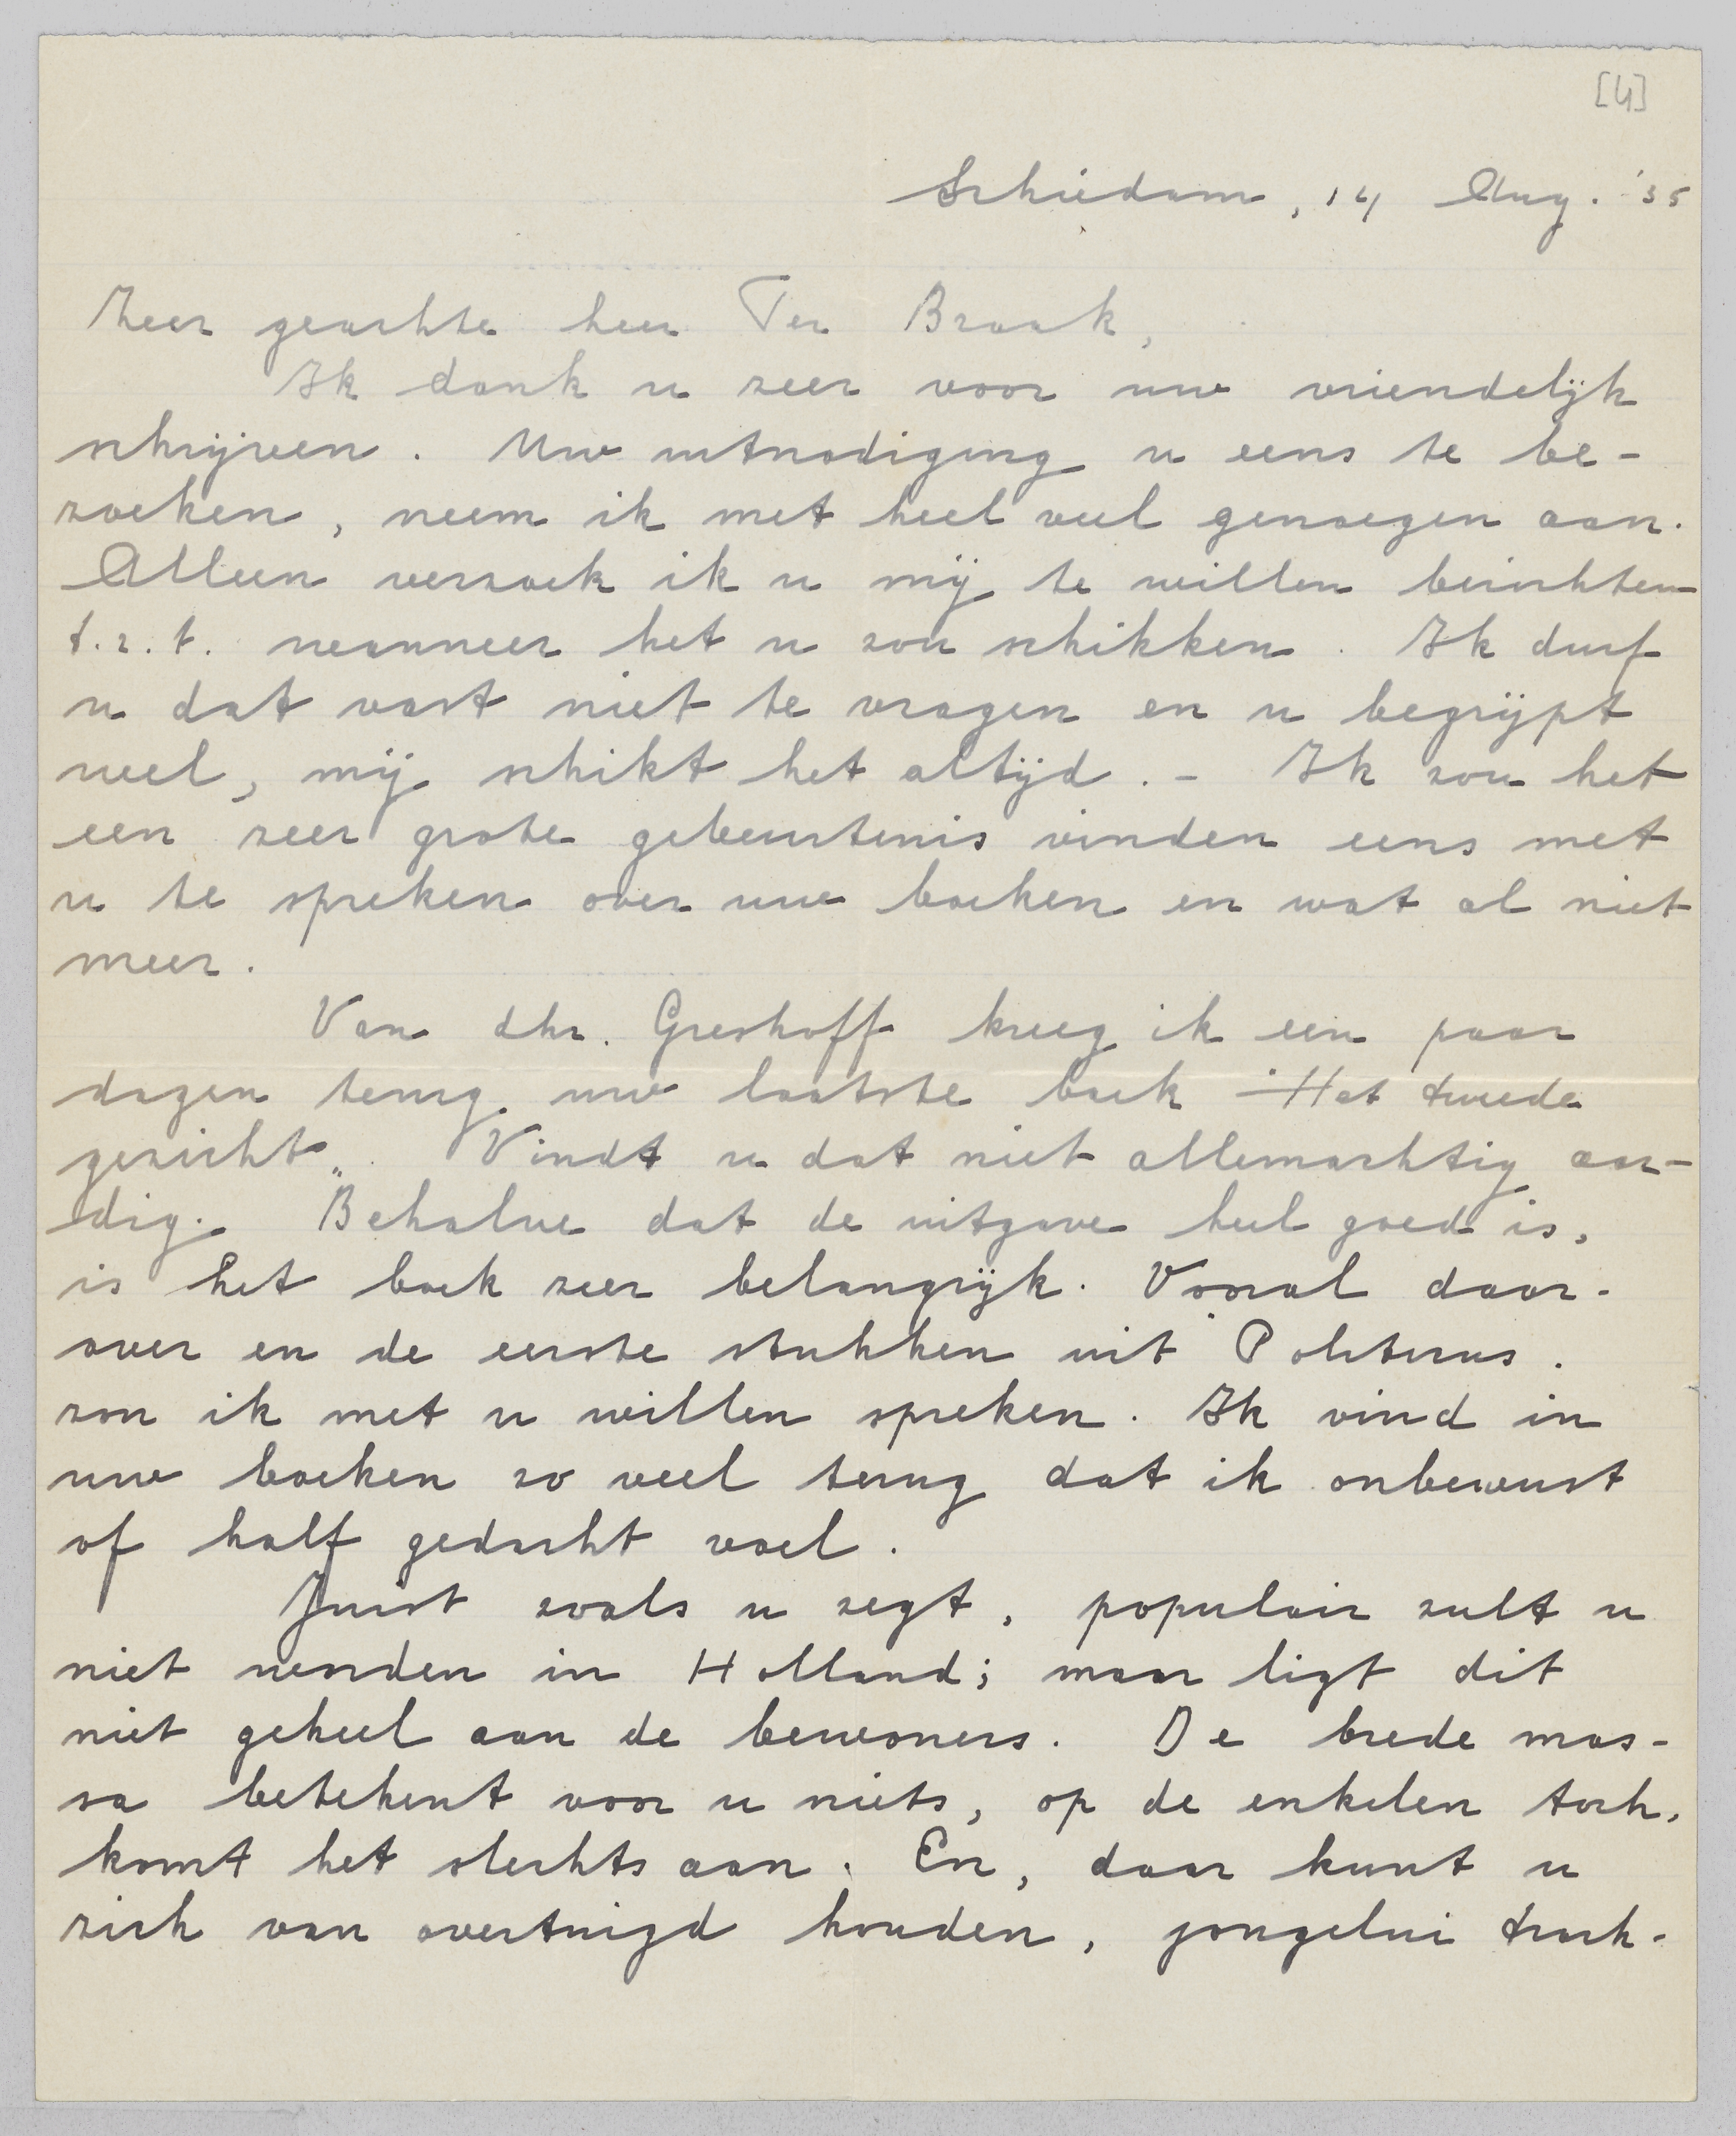 [4]
Schiedam, 14 Aug. '35
Zeer geachte heer Ter Braak,
Ik dank u zeer voor uw vriendelijk
schrijven. Uw uitnodiging u eens te be-
zoeken, neem ik met heel veel genoegen aan.
Alleen verzoek ik u mij te willen berichten
t.z.t. wanneer het u zou schikken. Ik durf
u dat vast niet te vragen en u begrijpt
wel, mij schikt het altijd. - Ik zou het
een zeer grote gebeurtenis vinden eens met
u te spreken over uw boeken en wat al niet
meer.
Van dhr. Greshoff kreeg ik een paar
dagen terug uw laatste boek "Het tweede
gezicht„. Vindt u dat niet allemachtig aar-
dig. Behalve dat de uitgave heel goed is,
is het boek zeer belangrijk. Vooral daar-
over en de eerste stukken uit Politicus.
zou ik met u willen spreken. Ik vind in
uw boeken zo veel terug dat ik onbewust
of half gedacht voel.
Juist zoals u zegt, populair zult u
niet worden in Holland; maar ligt dit
niet geheel aan de bewoners. De brede mas-
sa betekent voor u niets, op de enkelen toch,
komt het slechts aan. En, daar kunt u
zich van overtuigd houden, jongelui trach-